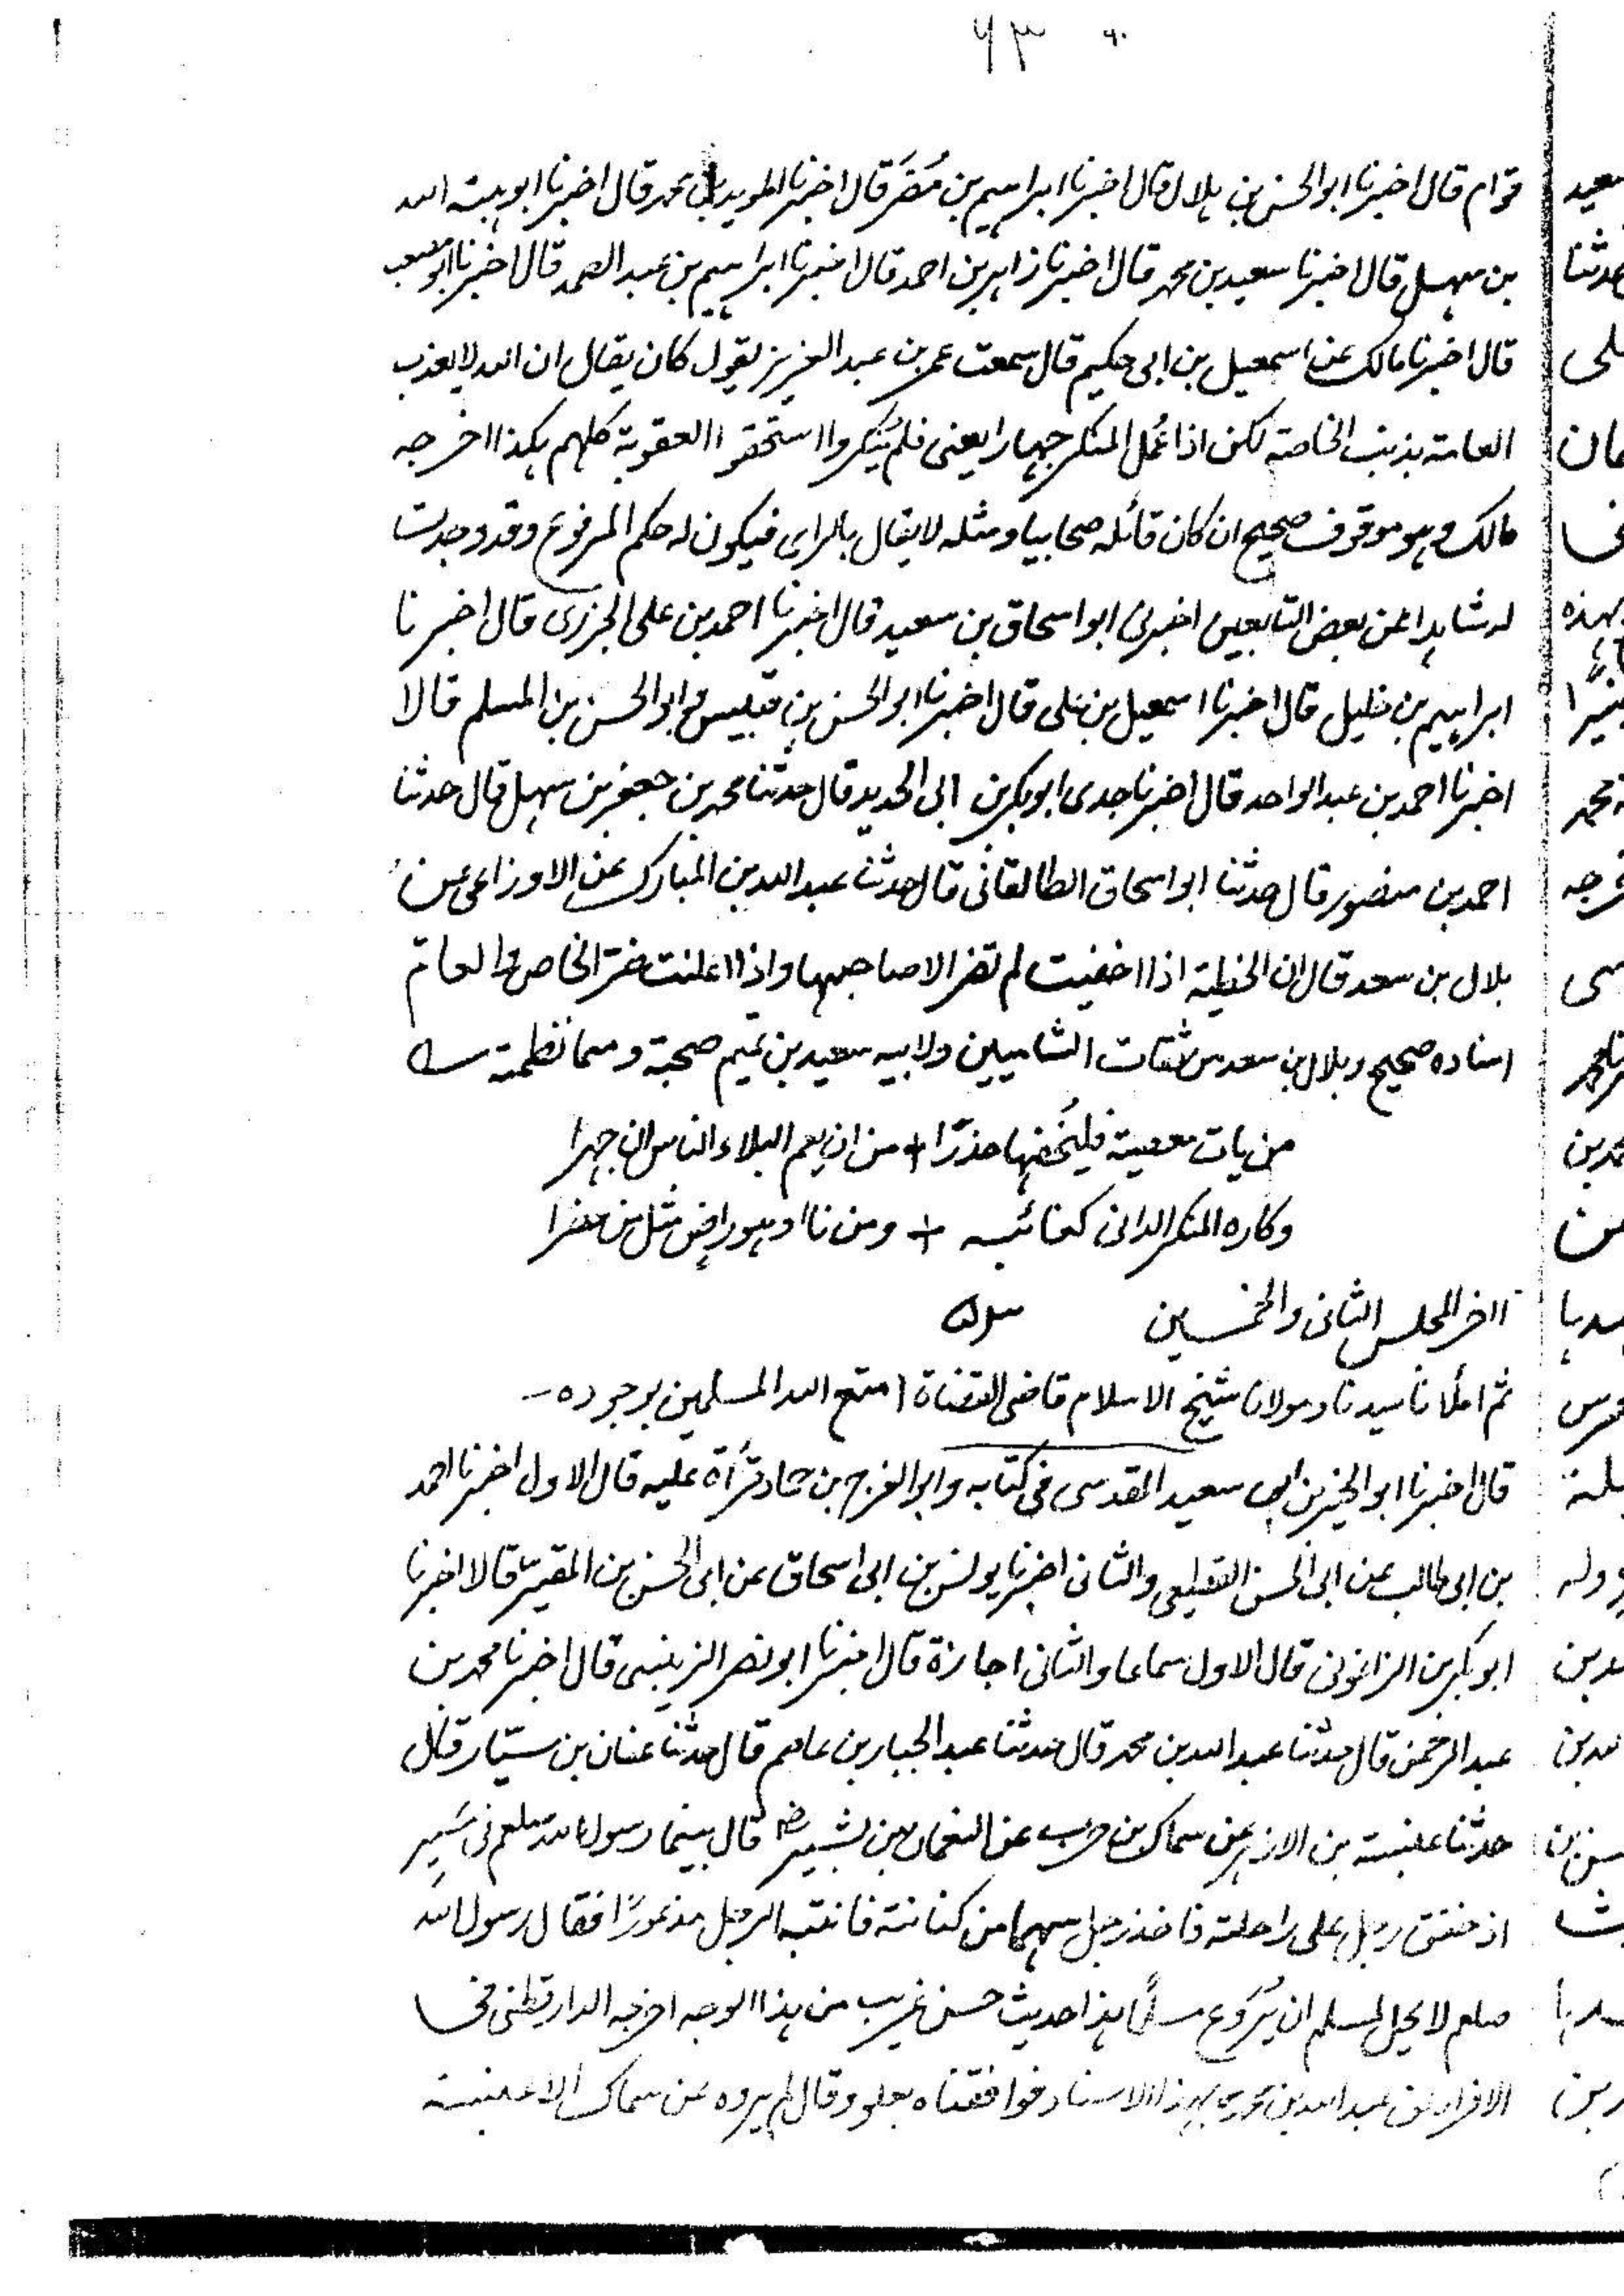 ٦٣
قوام قال اخبرنا ابو الحسن بن هلال قال اخبرنا ابراهيم بن مُضَر قال اخبرنا المويد بن محمد قال اخبرنا ابو هبة الله
بن سهل قال اخبرنا سعيد بن محمد قال اخبرنا زاهر بن احمد قال اخبرنا ابراهيم بن عبد الصمد قال اخبرنا ابو مصعب
قال اخبرنا مالك عن اسمعيل بن ابى حكيم قال سمعت عمر بن عبد العزيز يقول كان يقال ان الله لا يعذب
العامة بذنب الخاصة لكن اذا عُمل المنكر جهارا يعنى فلم يُنكروا استحقوا العقوبة كلهم هكذا اخرجه
مالك وهو موقوف صحيح ان كان قائله صحابيا ومثله لا يقال بالراى فيكون له حكم المرفوع وقد وجدت
له شاهدا عن بعض التابعين اخبرنى ابو اسحاق بن سعيد قال اخبرنا احمد بن على الجزرى قال اخبرنا
ابراهيم بن خليل قال اخبرنا اسمعيل بن على قال اخبرنا ابو الحسن بن قبيس وابو الحسن بن المسلم قالا
اخبرنا احمد بن عبد الواحد قال اخبرنا جدى ابو بكر بن ابى الحديد قال حدثنا محمد بن جعفر بن سهل قال حدثنا
احمد بن منصور قال حدثنا ابو اسحاق الطالقانى قال حدثنا عبد الله بن المبارك عن الاوزاعى عن
بلال بن سعد قال ان الخطية اذا اخفيت لم تضر الا صاحبها واذا اعلنت ضر الخاص والعام
اسناده صحيح وبلال بن سعد من ثقات الشاميين ولابيه سعيد بن تميم صحبة ومما نظمته
من يات معصية فليُخفها حذرًا + من ان يعم البلاء الناس ان جهرا
وكاره المنكر الدانى كغائبه + ومن ناا وهو راض مثل من حضرا
ااخر المجلس الثانى والخمسين
ثم املأنا سيدنا ومولانا شيخ الاسلام قاضى القضاة امتع الله المسلمين بوجوده
قال اخبرنا ابو الخير بن ابى سعيد المقدسى فى كتابه وابو الفرج بن حماد قرأة عليه قال الاول اخبرنا احمد
بن ابى طالب عن ابى الحسن القطيعى والثانى اخبرنا يونس بن ابى اسحاق عن ابى الحسن بن المقير قالا اخبرنا
ابو بكر بن الزاغونى قال الاول سماعا والثانى اجازة قال اخبرنا ابو نصر الزينبى قال اخبرنا محمد بن
عبد الرحمن قال حدثنا عبد الله بن محمد قال حدثنا عبد الجبار بن عاصم قال حدثنا عنان بن سيّار قال
حدثنا عنبسة بن الازهر عن سماك بن حرب عن النعمان بن بشير رض قال بينما رسول الله صلعم فى مَسِير
اذ خفق رجل على راحلته فاخذ رجل سهما من كنانته فانتبه الرجل مذعورًا فقال رسول الله
صلعم لا يحل لمسلم ان يُروّع مسلمًا هذا حديث حسن غريب من هذا الوجه اخرجه الدارقطنى فى
الافراد عن عبد الله بن محمد بهذا الاسناد فوافقناه بعلو وقال لم يروه عن سماك الا عنبسة